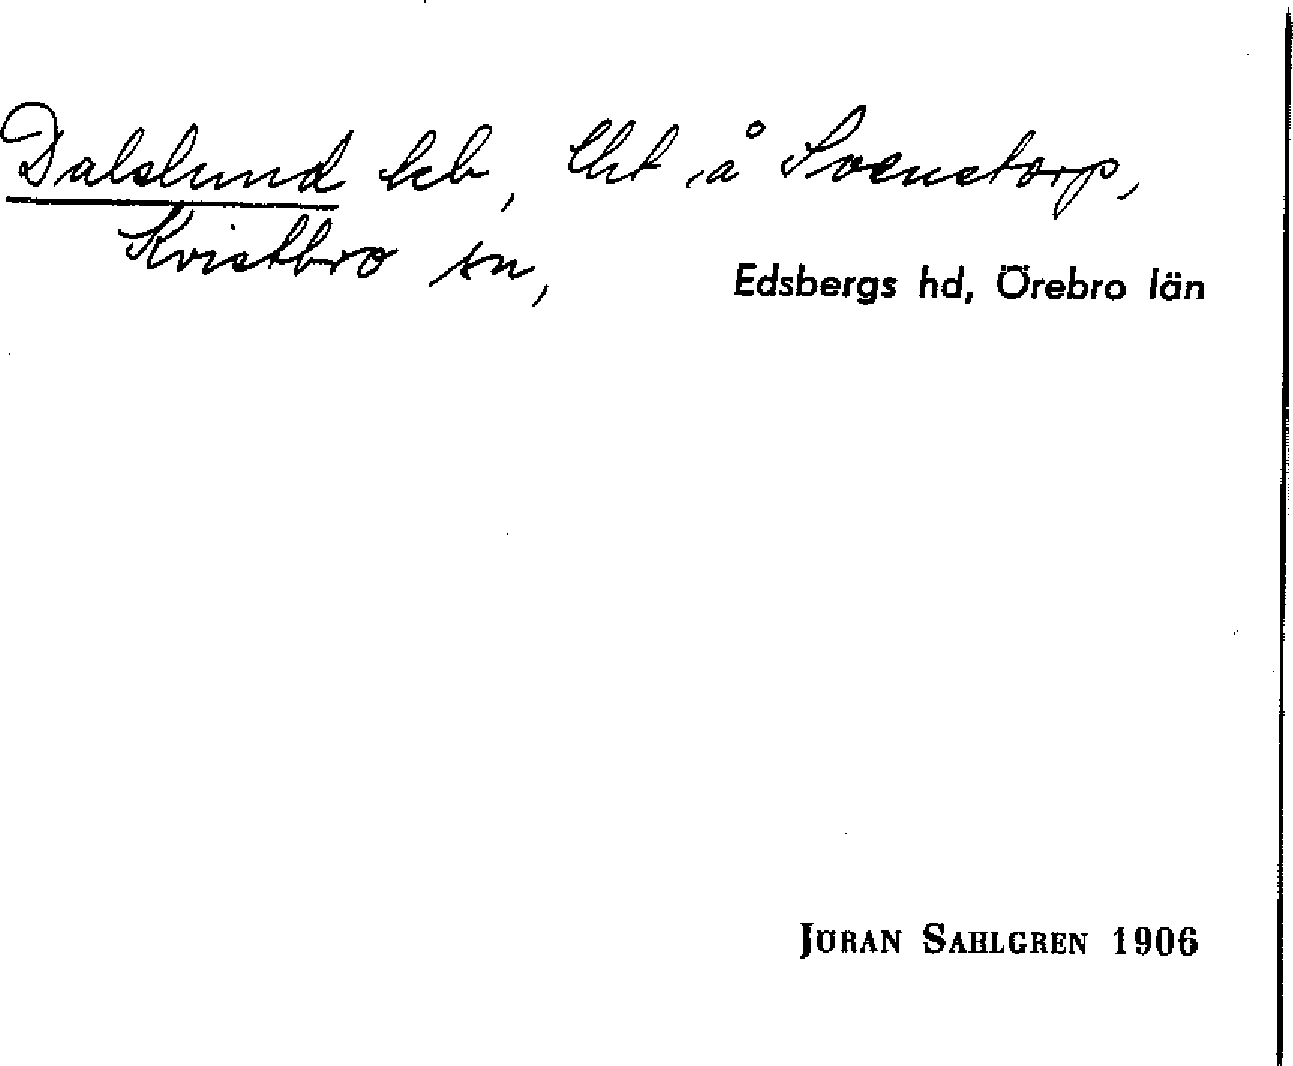 Dalslund lcb, lht å Svenstorp,
Kvistbro sn,
Edsbergs hd, Örebro län
JÖRAN SAHLGREN 1906